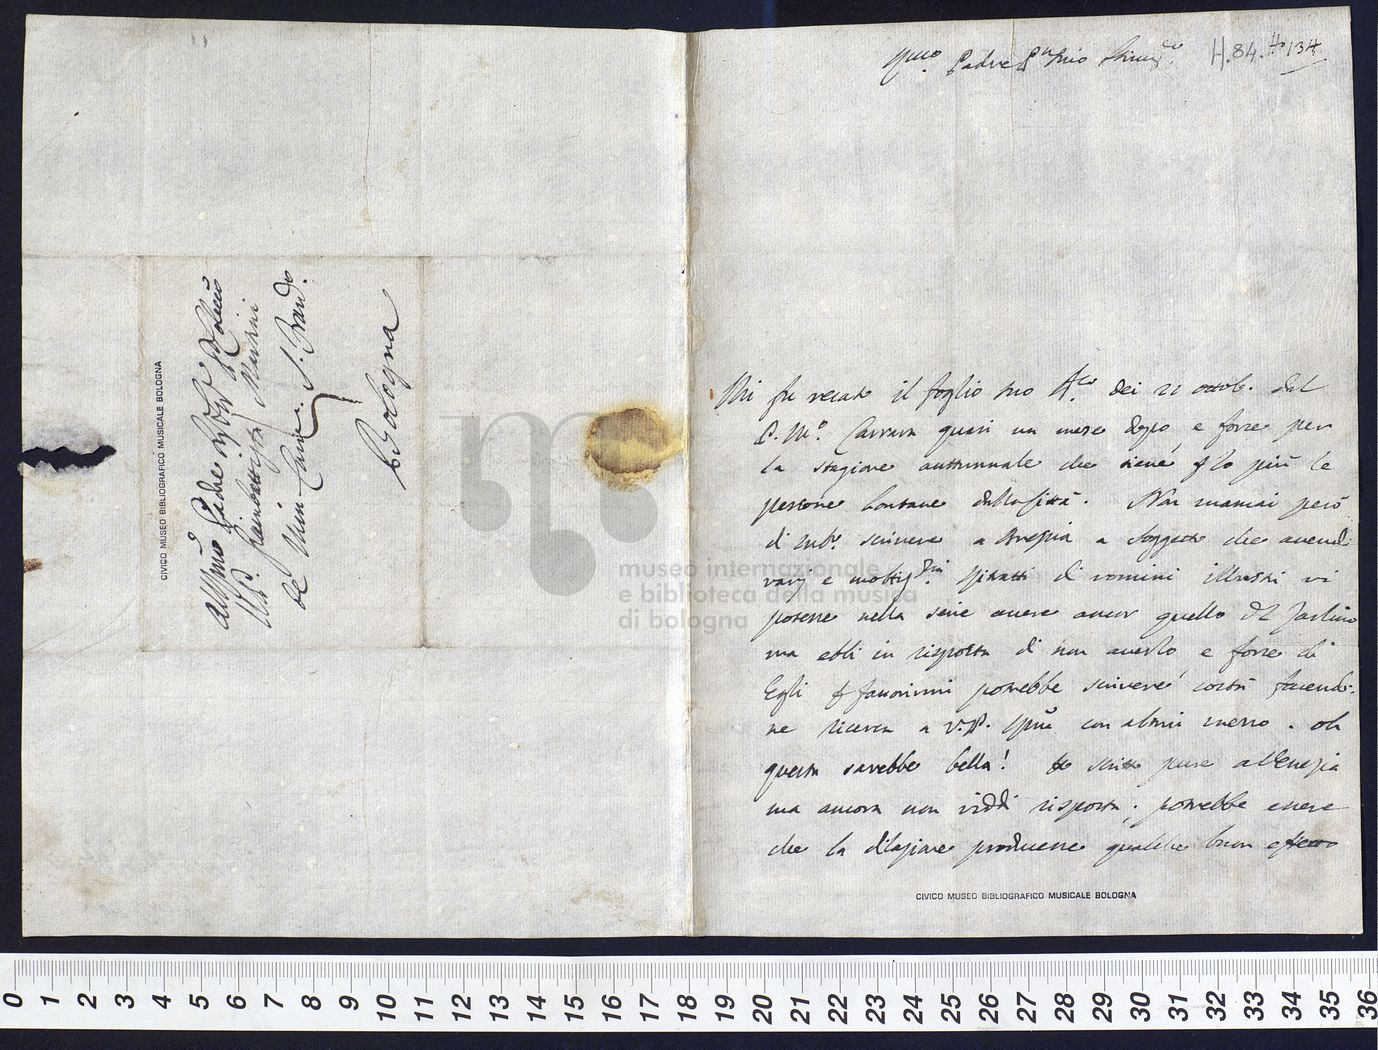 All M.to Rdo Padre Pre Colmo
Il P. Giambattista Martini
de Min. Conv. S. Franco
Bologna
CIVICO MUSEO BIBLIOGRAFICO MUSICALE BOLOGNA
Padre Pron mio
H.84. 134
Mi fu recato il foglio suo dei 22 ottob. dal
P. Mo. quasi un mese dopo e forse per
la stagione autunnale che tiene più le
persone lontane dalla città. Non mancai però
di scrivere a Brescia a soggetto che avendo
varj e molti ritratti di uomini illustri vi
potesse nella serie avere ancor quello del Zarlino
ma ebbi in risposta di non averlo, e forse di
Egli potrebbe scrivere costà facendo-
ne ricerca a V.P. con altrui mezzo. oh
questa sarebbe bella! Ho scritto pure a Venezia
ma ancora non viddi risposta, potrebbe essere
che la dilazione producesse qualche buon effetto
museo internazionale
e biblioteca della musica
di bologna
CIVICO MUSEO BIBLIOGRAFICO MUSICALE BOLOGNA
0 1 2 3 4 5 6 7 8 9 10 11 12 13 14 15 16 17 18 19 20 21 22 23 24 25 26 27 28 29 30 31 32 33 34 35 36